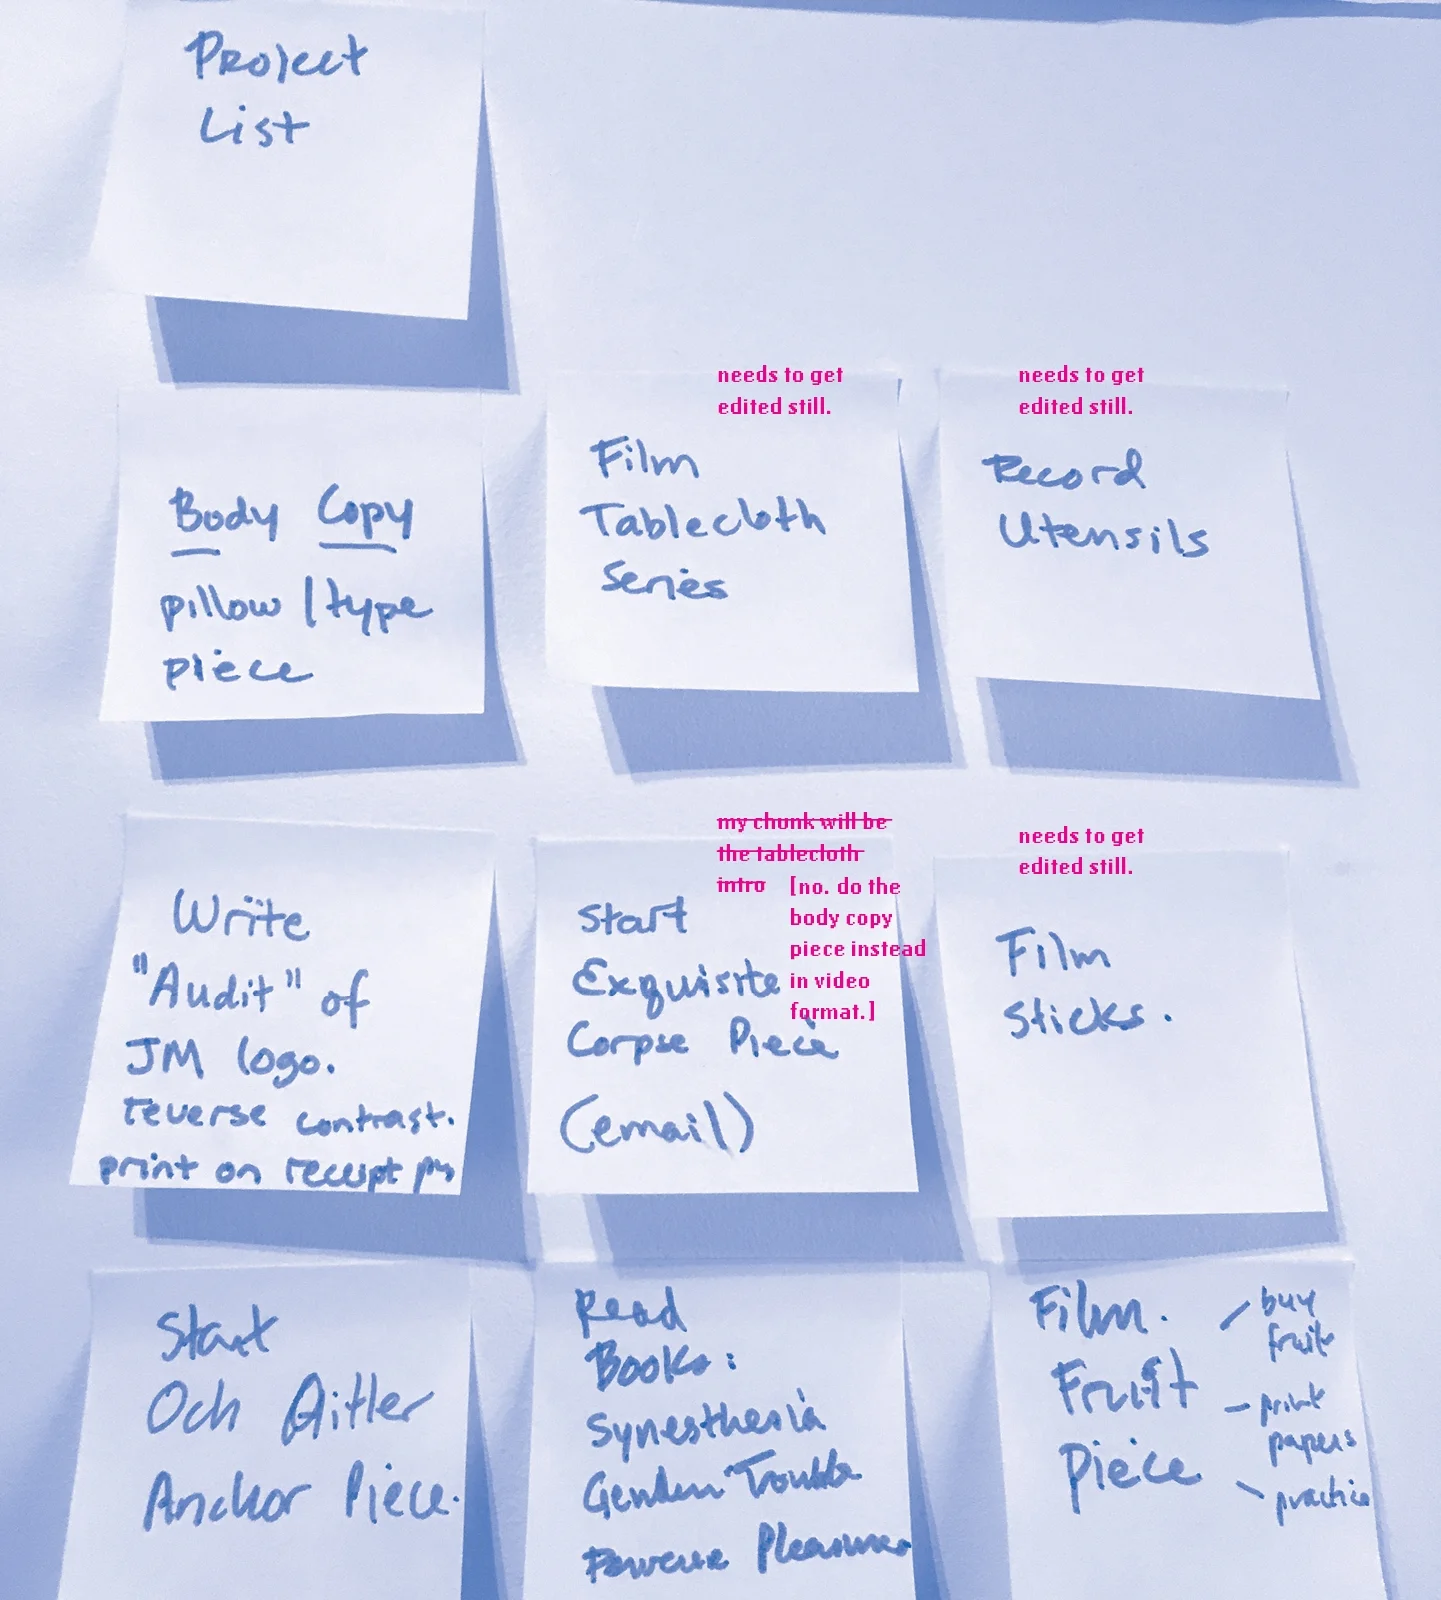 Project
List
Body Copy
pillow / type
piece
needs to get
edited still.
Film
Tablecloth
Series
needs to get
edited still.
Record
Utensils
Write
"Audit" of
JM logo.
reverse contrast.
print on receipt
my chunk will be
the tablecloth
intro
[no. do the
body copy
piece instead
in video
format.]
Start
Exquisite
Corpse Piece
(email)
needs to get
edited still.
Film
Sticks.
Start
Och
Anchor Piece.
Read
Books:
Synesthesia
Gender Trouble
Pleasures
Film.
Fruit
Piece
buy
fruit
print
papers
practice